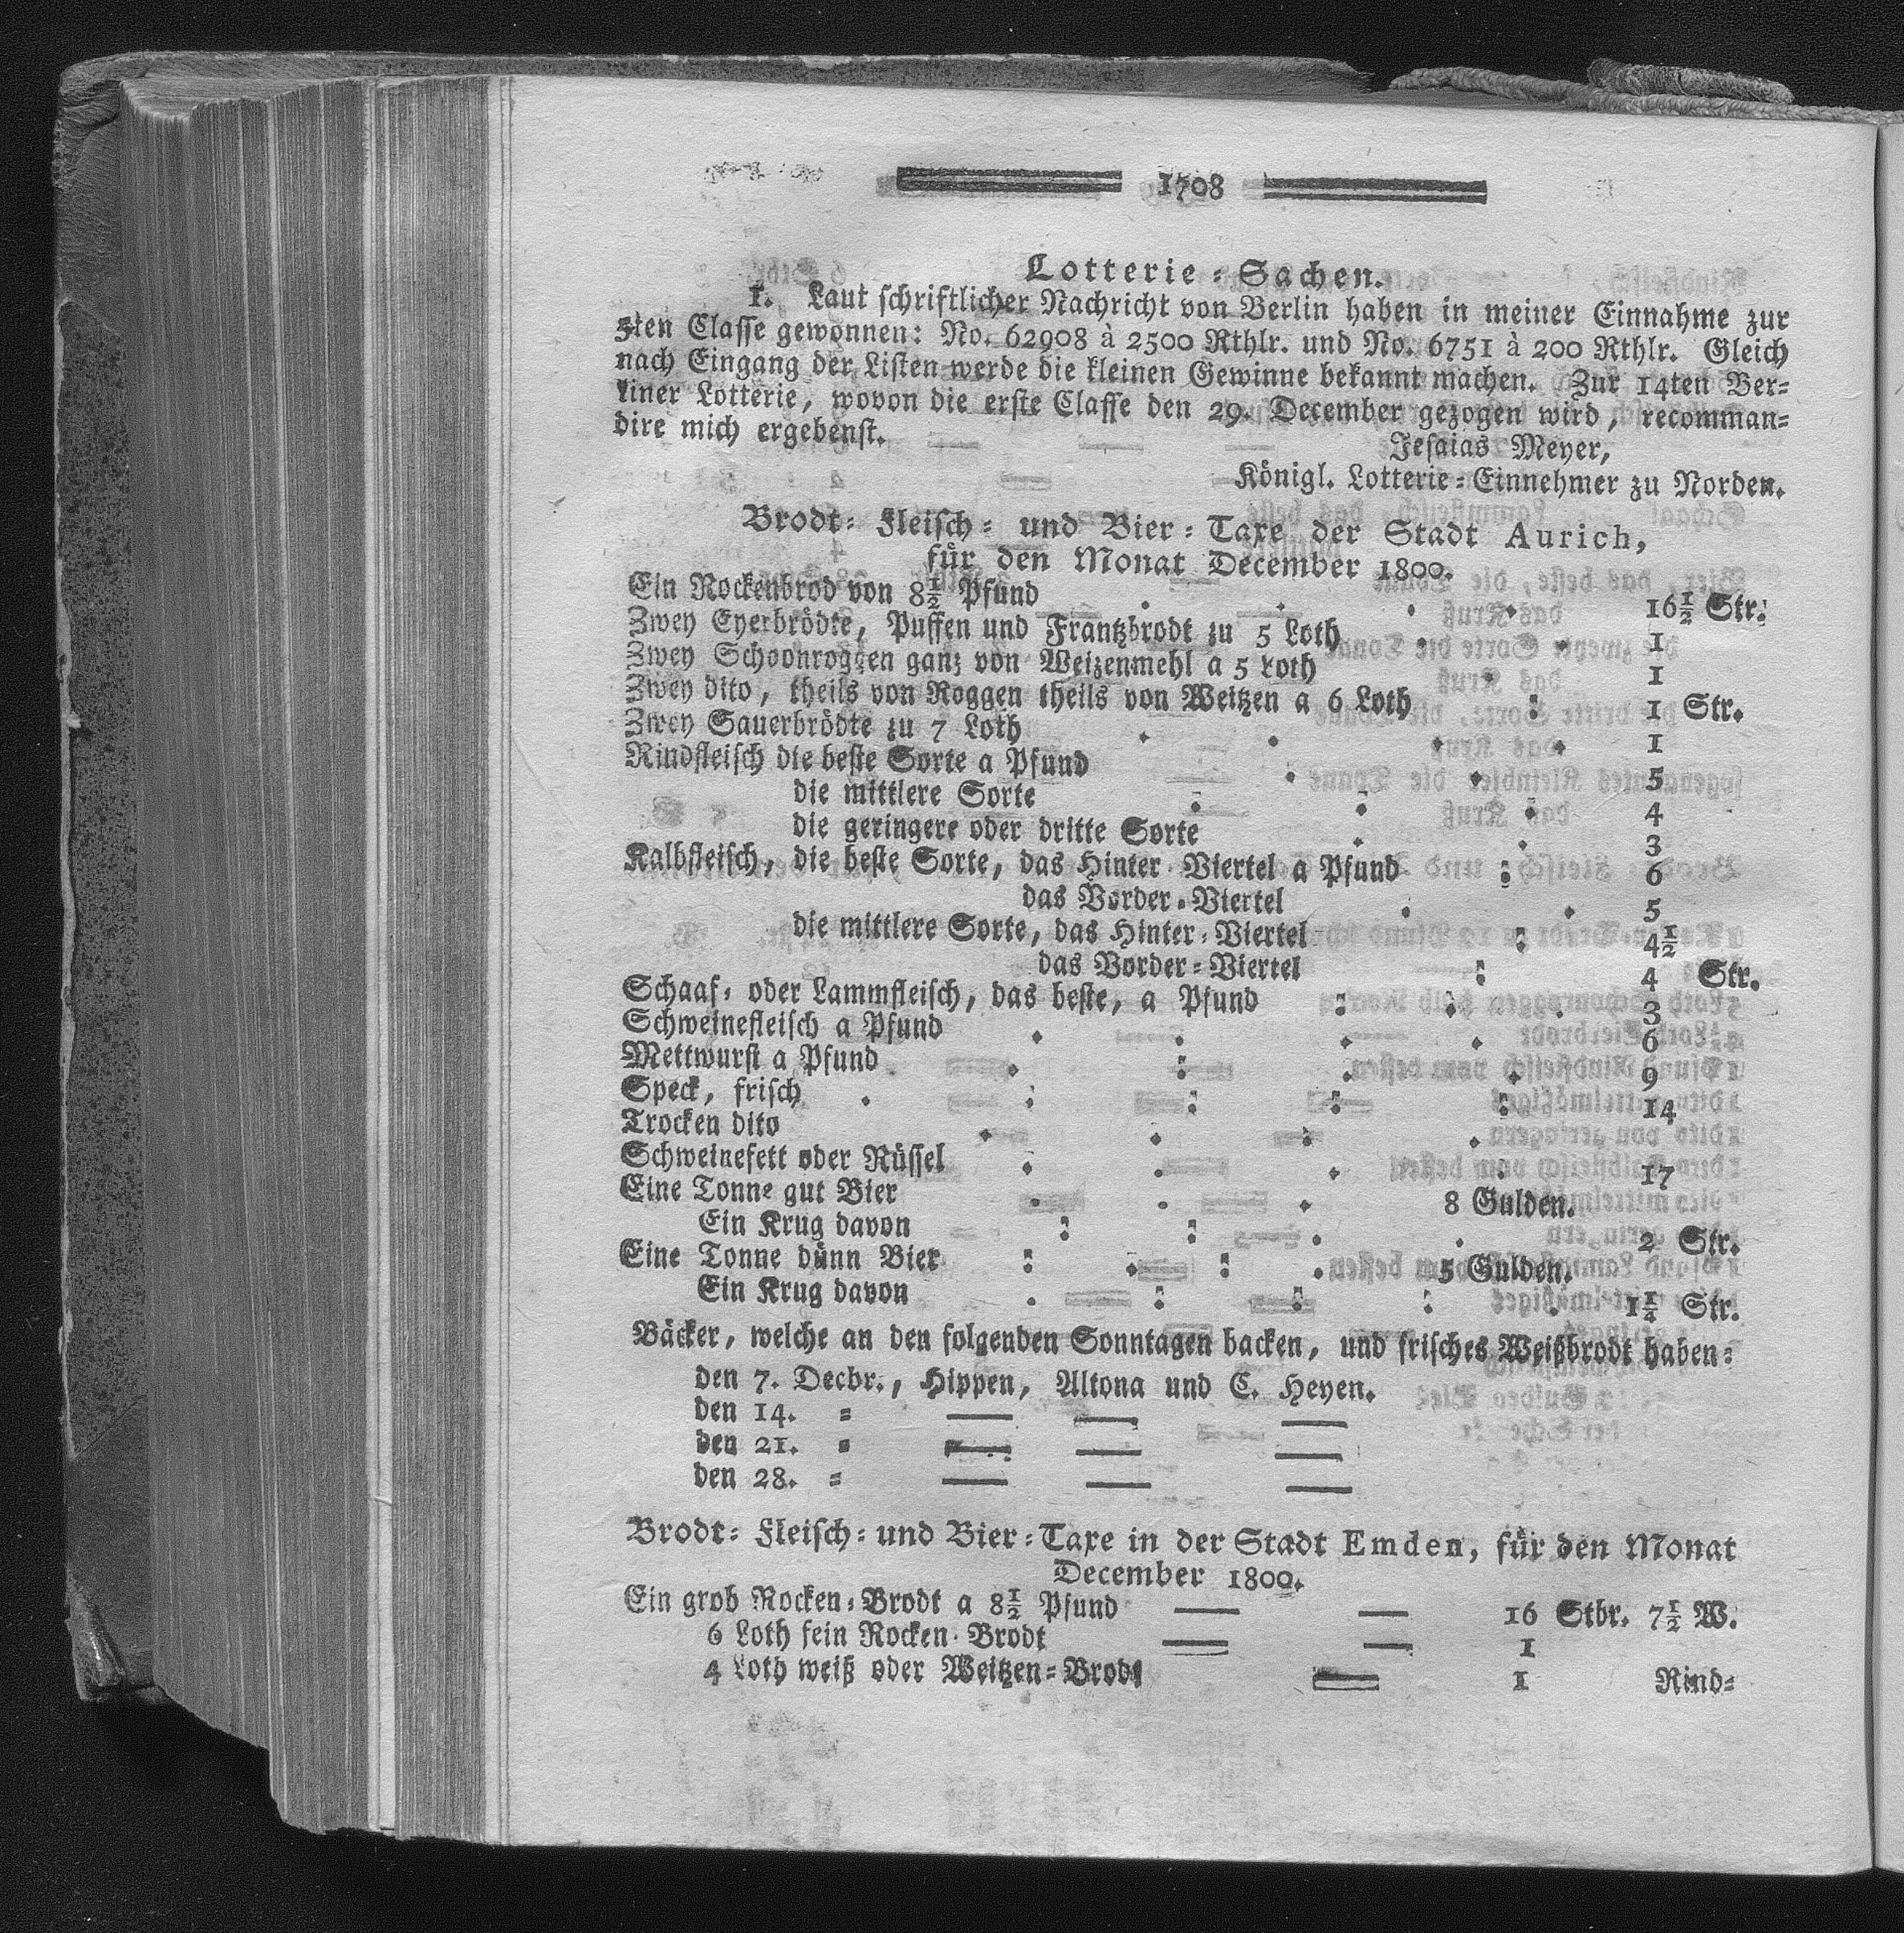 1708
Lotterie-Sachen.
1. Laut schriftlicher Nachricht von Berlin haben in meiner Einnahme zur
5ten Classe gewonnen: No. 62908 à 2500 Rthlr. und No. 6751 à 200 Rthlr. Gleich
nach Eingang der Listen werde die kleinen Gewinne bekannt machen. Zur 14ten Ber-
liner Lotterie, wovon die erste Classe den 29. December gezogen wird, recomman-
dire mich ergebenst.
Jesaias Meyer,
Königl. Lotterie-Einnehmer zu Norden.
Brodt- Fleisch- und Bier-Taxe der Stadt Aurich,
für den Monat December 1800.
Ein Rockenbrod von 8½ Pfund 16½ Str.
Zwey Eyerbrödte, Puffen und Frantzbrodt zu 5 Loth 1
Zwey Schoonroggen ganz von Weizenmehl a 5 Loth 1
Zwey dito, theils von Roggen theils von Weitzen a 6 Loth 1 Str.
Zwey Sauerbrödte zu 7 Loth 1
Rindfleisch die beste Sorte a Pfund 5
die mittlere Sorte 4
die geringere oder dritte Sorte 3
Kalbfleisch, die beste Sorte, das Hinter Viertel a Pfund 6
das Vorder-Viertel 5
die mittlere Sorte, das Hinter-Viertel 4½
das Vorder-Viertel 4 Str.
Schaaf- oder Lammfleisch, das beste, a Pfund 3
Schweinefleisch a Pfund 6
Mettwurst a Pfund 9
Speck, frisch 14
Trocken dito
Schweinefett oder Rüssel 17
Eine Tonne gut Bier 8 Gulden.
Ein Krug davon 2 Str.
Eine Tonne dünn Bier 5 Gulden.
Ein Krug davon 1¼ Str.
Bäcker, welche an den folgenden Sonntagen backen, und frisches Weißbrodt haben:
den 7. Decbr., Hippen, Altona und C. Heyen.
den 14. - — — —
den 21. - — — —
den 28. - — — —
Brodt- Fleisch- und Bier-Taxe in der Stadt Emden, für den Monat
December 1800.
Ein grob Rocken-Brodt a 8½ Pfund — — 16 Stbr. 7½ W.
6 Loth fein Rocken-Brodt — — 1
4 Loth weiß oder Weitzen-Brodt — 1
Rind-